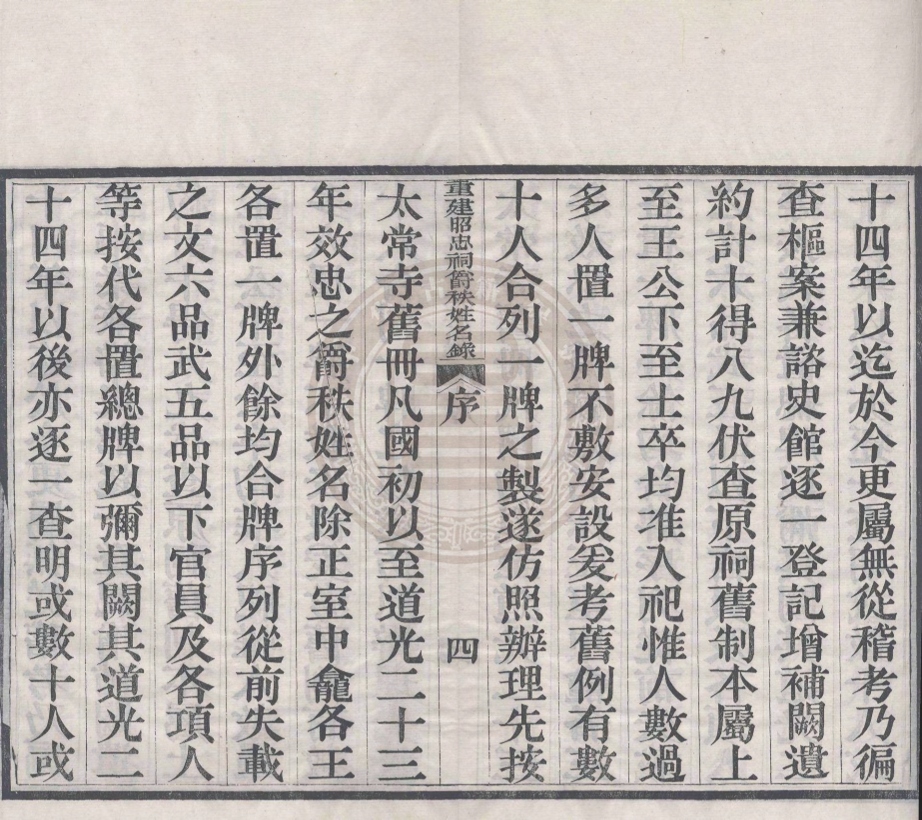 十四年以迄於今更屬無從稽考乃徧
查樞案兼諮史館逐一登記增補闕遺
約計十得八九伏查原祠舊制本屬上
至王公下至士卒均准入祀惟人數過
多人置一牌不敷安設爰考舊例有數
十人合列一牌之製遂仿照辦理先按
重建昭忠祠爵秩姓名錄 序 四
太常寺舊冊凡國初以至道光二十三
年效忠之爵秩姓名除正室中龕各王
各置一牌外餘均合牌序列從前失載
之文六品武五品以下官員及各項人
等按代各置總牌以彌其闕其道光二
十四年以後亦逐一查明或數十人或